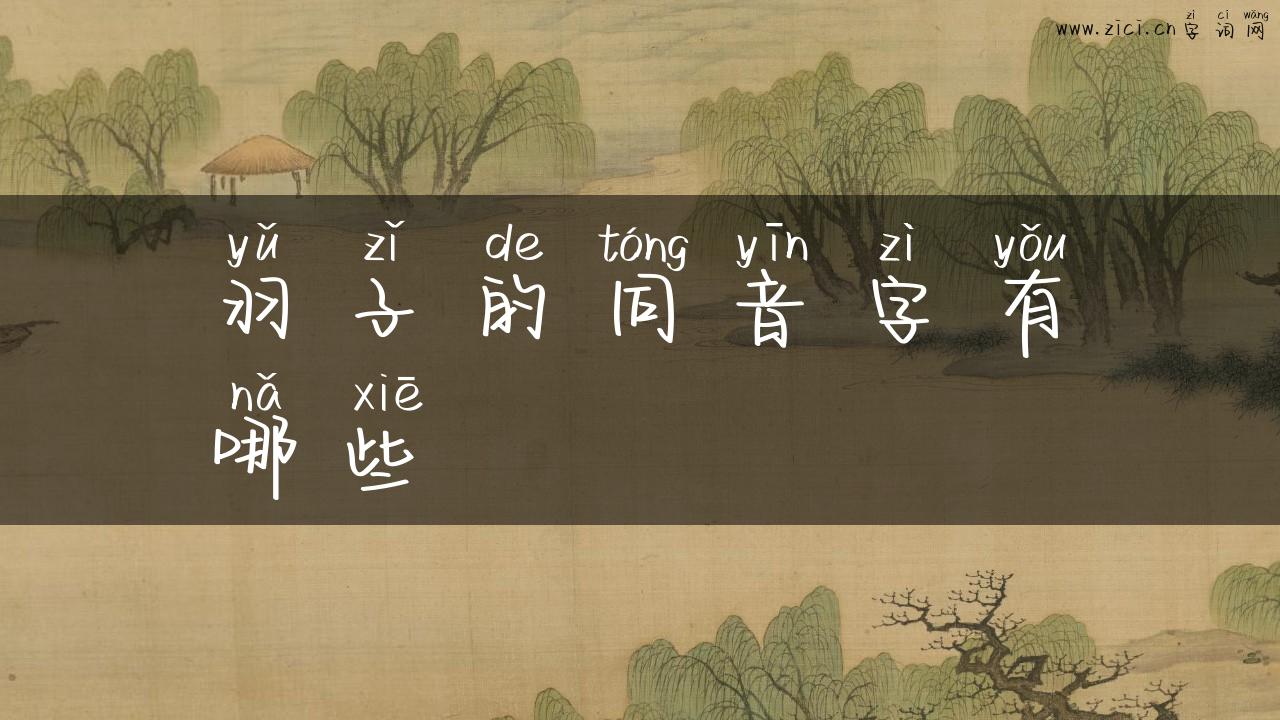 zì cí wǎng
www.zici.cn 字 词 网
yǔ zǐ de tóng yīn zì yǒu
羽 子 的 同 音 字 有
nǎ xiē
哪 些